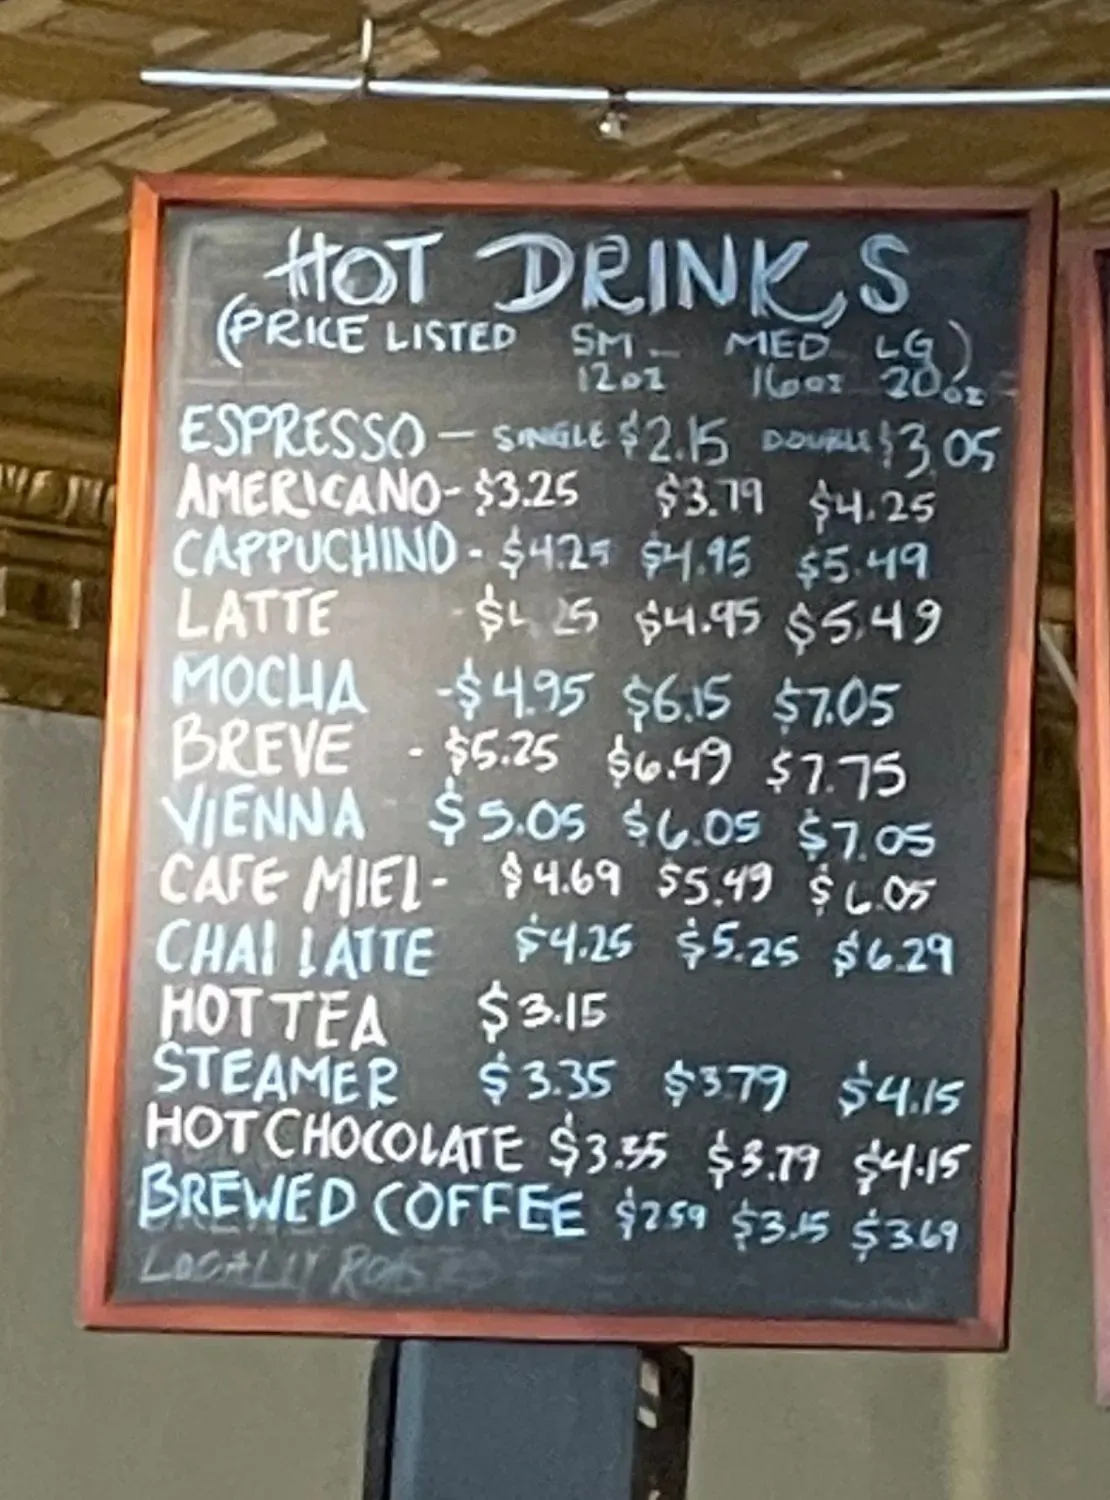 HOT DRINKS
(PRICE LISTED SM - MED LG)
12oz 16oz 20oz
ESPRESSO - SINGLE $2.15 DOUBLE $3.05
AMERICANO- $3.25 $3.79 $4.25
CAPPUCHINO - $4.25 $4.95 $5.49
LATTE - $4.25 $4.95 $5.49
MOCHA -$4.95 $6.15 $7.05
BREVE - $5.25 $6.49 $7.75
VIENNA $5.05 $6.05 $7.05
CAFE MIEL- $4.69 $5.49 $6.05
CHAI LATTE $4.25 $5.25 $6.29
HOT TEA $3.15
STEAMER $3.35 $3.79 $4.15
HOT CHOCOLATE $3.35 $3.79 $4.15
BREWED COFFEE $2.59 $3.15 $3.69
LOCALLY